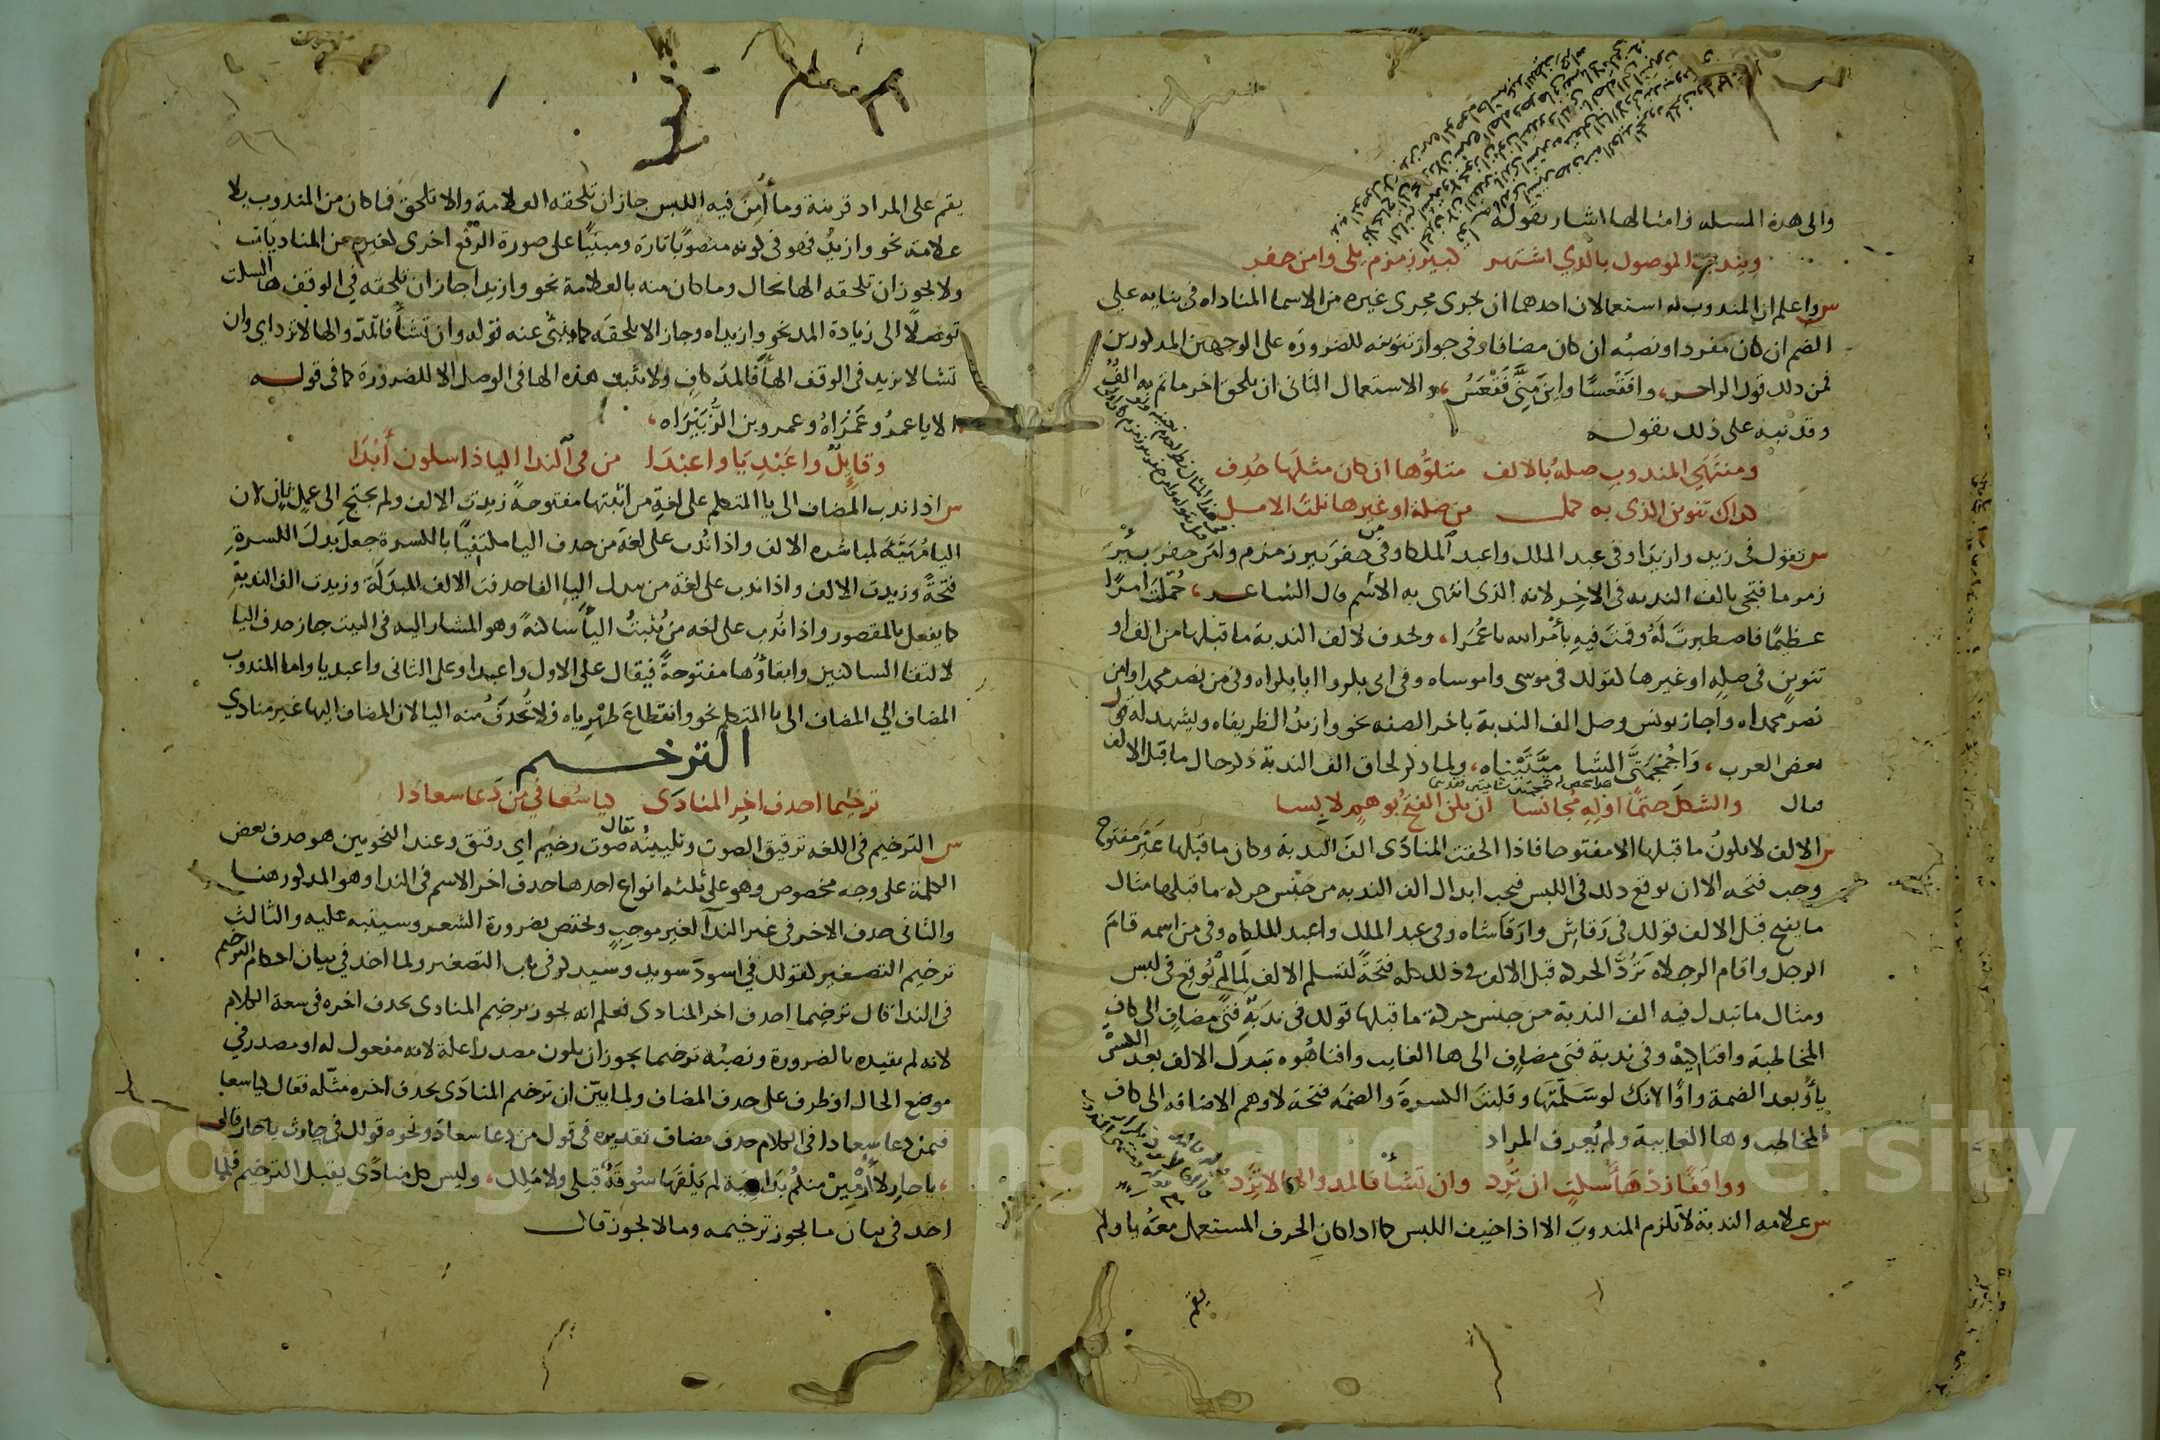 والى هذه المسله وامثالها اشار بقوله
ويندب الموصول بالذي اشتهر كبير زمزم يلي وامن حفر
س واعلم ان المندوب له استعمالان احدهما ان يجرى مجرى غيره من الاسما المناداه فى بنايه على
الضم ان كان مفردا ونصبه ان كان مضافا وفى جواز تنوينه للضرورة على الوجهين المذكورين
فمن ذلك قول الراجز، وافقعسا واين منى فقعس، والاستعمال الثانى ان يلحق اخر ما تم به الف
وقد نبه على ذلك بقوله
ومنتهى المندوب صله بالالف متلوها ان كان مثلها حذف
كذاك تنوين الذى به كمل من صلة او غيرها نلت الامل
س تقول فى زيد وازيدا وفى عبد الملك واعبد الملكا وفى من حفر بير زمزم وامن حفر بير
زمزما فتجى بالف الندبه فى الاخر لانه الذى انتهى به الاسم قال الشاعر، حملت امرا
عظيما فاصطبرت له وقمت فيه بامر الله يا عمرا، ويحذف لالف الندبة ما قبلها من الف او
تنوين فى صله او غيرها كقولك فى موسى واموساه وفى ابى بكر وا ابا بكراه وفى من نصر محمدا وامن
نصر محمداه واجاز يونس وصل الف الندبة باخر الصفه نحو وازيد الظريفاه ويشهد له قول
بعض العرب، واجمجمتى الشاميتيناه، ولما ذكر لحاق الف الندبة ذكر حال ما قبل الالف
قال والشكل حتما اوله مجانسا ان يكن الفتح بوهم لابسا
س الالف لا يكون ما قبلها الا مفتوحا فاذا الحقت المنادى الف الندبة وكان ما قبلها غير مفتوح
وجب فتحه الا ان يوقع ذلك فى اللبس فيجب ابدال الف الندبه من جنس حركة ما قبلها مثال
ما يفتح قبل الالف قولك فى رقاش وارقاشاه وفى عبد الملك واعبد الملكاه وفى من اسمه قام
الرجل واقام الرجلاه ترد الحركة قبل الالف فى ذلك كله فتحة لتسلم الالف لما لم يوقع فى لبس
ومثال ما تبدل فيه الف الندبة من جنس حركة ما قبلها قولك فى ندبة فتى مضاف الى كاف
المخاطبة وافتاكيه وفى ندبة فتى مضاف الى ها الغايب وافتاهوه تبدل الالف بعد الكسرة
ياء وبعد الضمة واوا لانك لو سلمتها وقلبت الكسرة والضمة فتحة لاوهم الاضافه الى كاف
المخاطب وها الغايبة ولم يعرف المراد
وواقفا زد ها سكت ان ترد وان تشا فالمد والها لا تزد
س علامه الندبة لا تلزم المندوب الا اذا خيف اللبس كما اذا كان الحرف المستعمل معه يا ولم
يقم
٩٦
يقم على المراد قرينة وما أمن فيه اللبس جاز ان تلحقه العلامة والا تلحق فما كان من المندوب بلا
علامة نحو وازيد فهو فى كونه منصوبا تارة ومبنيا على صورة الرفع اخرى كغيره من المناديات
ولا يجوز ان تلحقه الها بحال وما كان منه بالعلامة نحو وازيدا جاز ان تلحقه فى الوقف ها السكت
توصلا الى زيادة المد نحو وازيداه وجاز الا يلحقه كما ينبئ عنه قوله وان تشا فالمد والها لا تزد اي وان
تشا لا تزيد فى الوقف الها فالمد كاف ولا تثبت هذه الها فى الوصل الا للضرورة كما فى قوله
الا يا عمرو عمراه وعمرو بن الزبيراه،
وقايل واعبديا واعبدا من فى الندا اليا ذا سكون أبدا
س اذا ندب المضاف الى يا المتكلم على لغة من اثبتها مفتوحة زيدت الالف ولم يحتج الى عمل ثان لان
اليا مهيئة لمباشرة الالف واذا ندب على لغة من حذف اليا مكتفيا بالكسرة جعل بدل الكسرة
فتحة وزيدت الالف واذا ندب على لغة من يبدل اليا الفا حذفت الالف المبدلة وزيدت الف الندبة
كما يفعل بالمقصور واذا ندب على لغه من يثبت اليا ساكنة وهو المشار اليه فى البيت جاز حذف اليا
لالتقا الساكنين وابقاؤها مفتوحة فيقال على الاول واعبدا وعلى الثانى واعبديا واما المندوب
المضاف الي المضاف الى يا المتكلم نحو وانقطاع ظهرياه فلا تحذف منه اليا لان المضاف اليها غير منادي
الترخيم
ترخيما احذف اخر المنادى كيا سعا في من دعا سعادا
س الترخيم فى اللغه ترقيق الصوت وتليينه يقال صوت رخيم اي رقيق وعند النحويين هو حذف بعض
الكلمة على وجه مخصوص وهو على ثلثه انواع احدها حذف اخر الاسم فى الندا وهو المذكور هنا
والثانى حذف الاخر فى غير الندا لغير موجب ويختص بضرورة الشعر وسينبه عليه والثالث
ترخيم التصغير كقولك في اسود سويد وسيذكر فى باب التصغير ولما اخذ في بيان احكام الترخيم
فى الندا قال ترخيما احذف اخر المنادى فعلم انه يجوز ترخيم المنادى بحذف اخره فى سعة الكلام
لانه لم يقيده بالضرورة ونصبه ترخيما يجوز ان يكون مصدرا علة لانه مفعول له او مصدر في
موضع الحال او ظرف على حذف المضاف ولما بين ان ترخيم المنادى بحذف اخره مثله فقال كيا سعا
فيمن دعا سعادا فى الكلام حذف مضاف تقديره فى قول من دعا سعاد ونحوه قولك فى حارث يا حار قال
، يا حار لا ارمين منكم بداهية لم يلقها سوقة قبلى ولا ملك، وليس كل منادى يقبل الترخيم فلهذا
اخذ فى بيان ما يجوز ترخيمه وما لا يجوز قال
Copyright © King Saud University